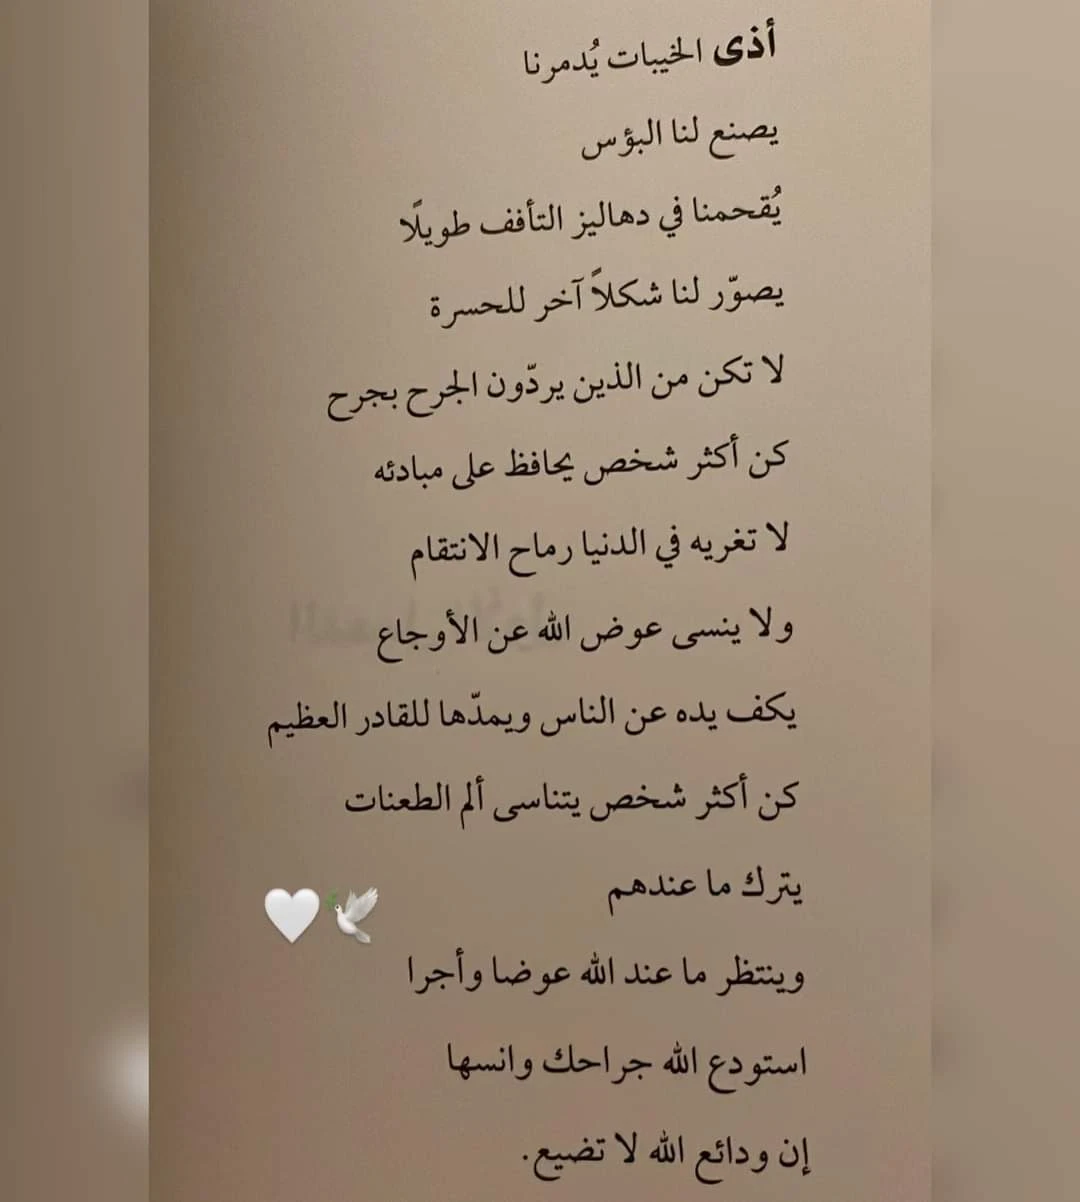 أذى الخيبات يُدمرنا
يصنع لنا البؤس
يُقحمنا في دهاليز التأفف طويلًا
يصوّر لنا شكلاً آخر للحسرة
لا تكن من الذين يردّون الجرح بجرح
كن أكثر شخص يحافظ على مبادئه
لا تغريه في الدنيا رماح الانتقام
ولا ينسى عوض الله عن الأوجاع
يكف يده عن الناس ويمدّها للقادر العظيم
كن أكثر شخص يتناسى ألم الطعنات
يترك ما عندهم
وينتظر ما عند الله عوضا وأجرا
استودع الله جراحك وانسها
إن ودائع الله لا تضيع.